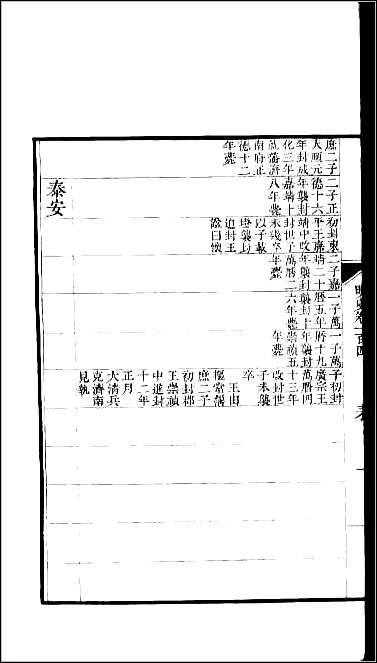 明史卷一百四
表
庶二子
天順元
年封成
化三年
就藩濟
南府正
德十二
年薨
二子正
德十六
年襲封
嘉靖十
八年薨
初封東
平王嘉
靖中改
封世子
未襲卒
以子載
襲封
追封王
諡曰懷
二子嘉
靖二十
年襲封
萬曆二
年薨
一子萬
曆五年
襲封十
六年薨
一子萬
曆十九
年襲封
崇禎五
年薨
子初封
廣宗王
萬曆四
十三年
改封世
子未襲
卒
王由
樞常潔
庶二子
初封郡
王崇禎
中進封
十二年
正月
大清兵
克濟南
見執
泰安